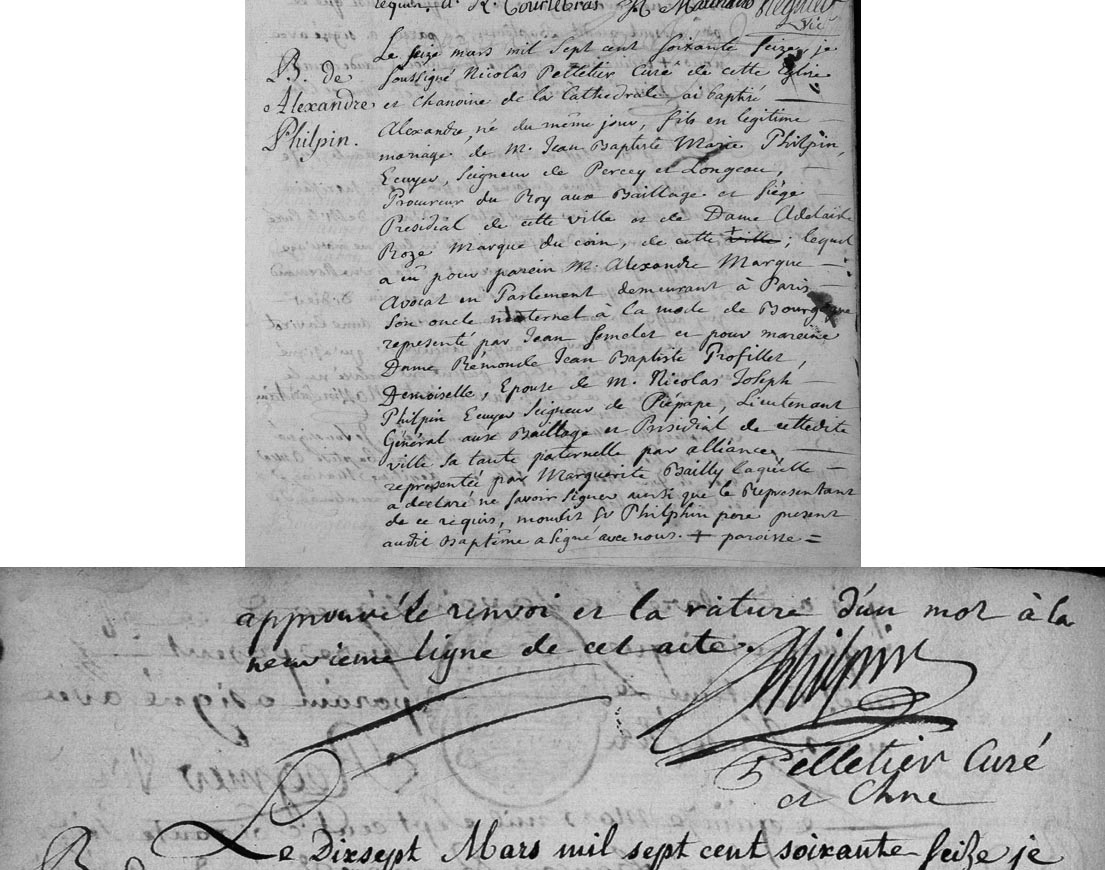 requis. A. R. Courtebras M. Mathieu Regnier
Vic
B. de
Alexandre
Philpin.
Le seize mars mil Sept cent Soixante Seize, je
soussigné Nicolas Pelletier Curé de cette Eglise
et Chanoine de la Cathedrale, ai baptisé
Alexandre, né du même jour, fils en legitime
mariage de M. Jean Baptiste Marie Philpin,
Ecuyer, Seigneur de Percey et Longeau,
Procureur du Roy aux Baillage et Siége
Presidial de cette ville et de Dame Adelaide
Roze Marque du coin, de cette + ville ; lequel
a eu pour parein M. Alexandre Marque
Avocat en Parlement demeurant à Paris
Son oncle maternel à la mode de Bourgogne
representé par Jean Semelet et pour mareine
Dame Rémonde Jean Baptiste Profillet,
Demoiselle, Epouse de M. Nicolas Joseph
Philpin Ecuyer Seigneur de Piépape, Lieutenant
Général aux Baillage et Présidial de cettedite
ville Sa tante paternelle par alliance,
representée par Marguerite Bailly laquelle
a declaré ne savoir Signer ainsi que le Representant
de ce requis, mondit Sr Philphin pere present
audit Baptême a Signé avec nous. + paroisse =
approuvé le renvoi et la rature d'un mot à la
neuvieme ligne de cet acte.
Philpin
Pelletier Curé
et Chne
B
Le Dixsept Mars mil sept cent soixante Seize je